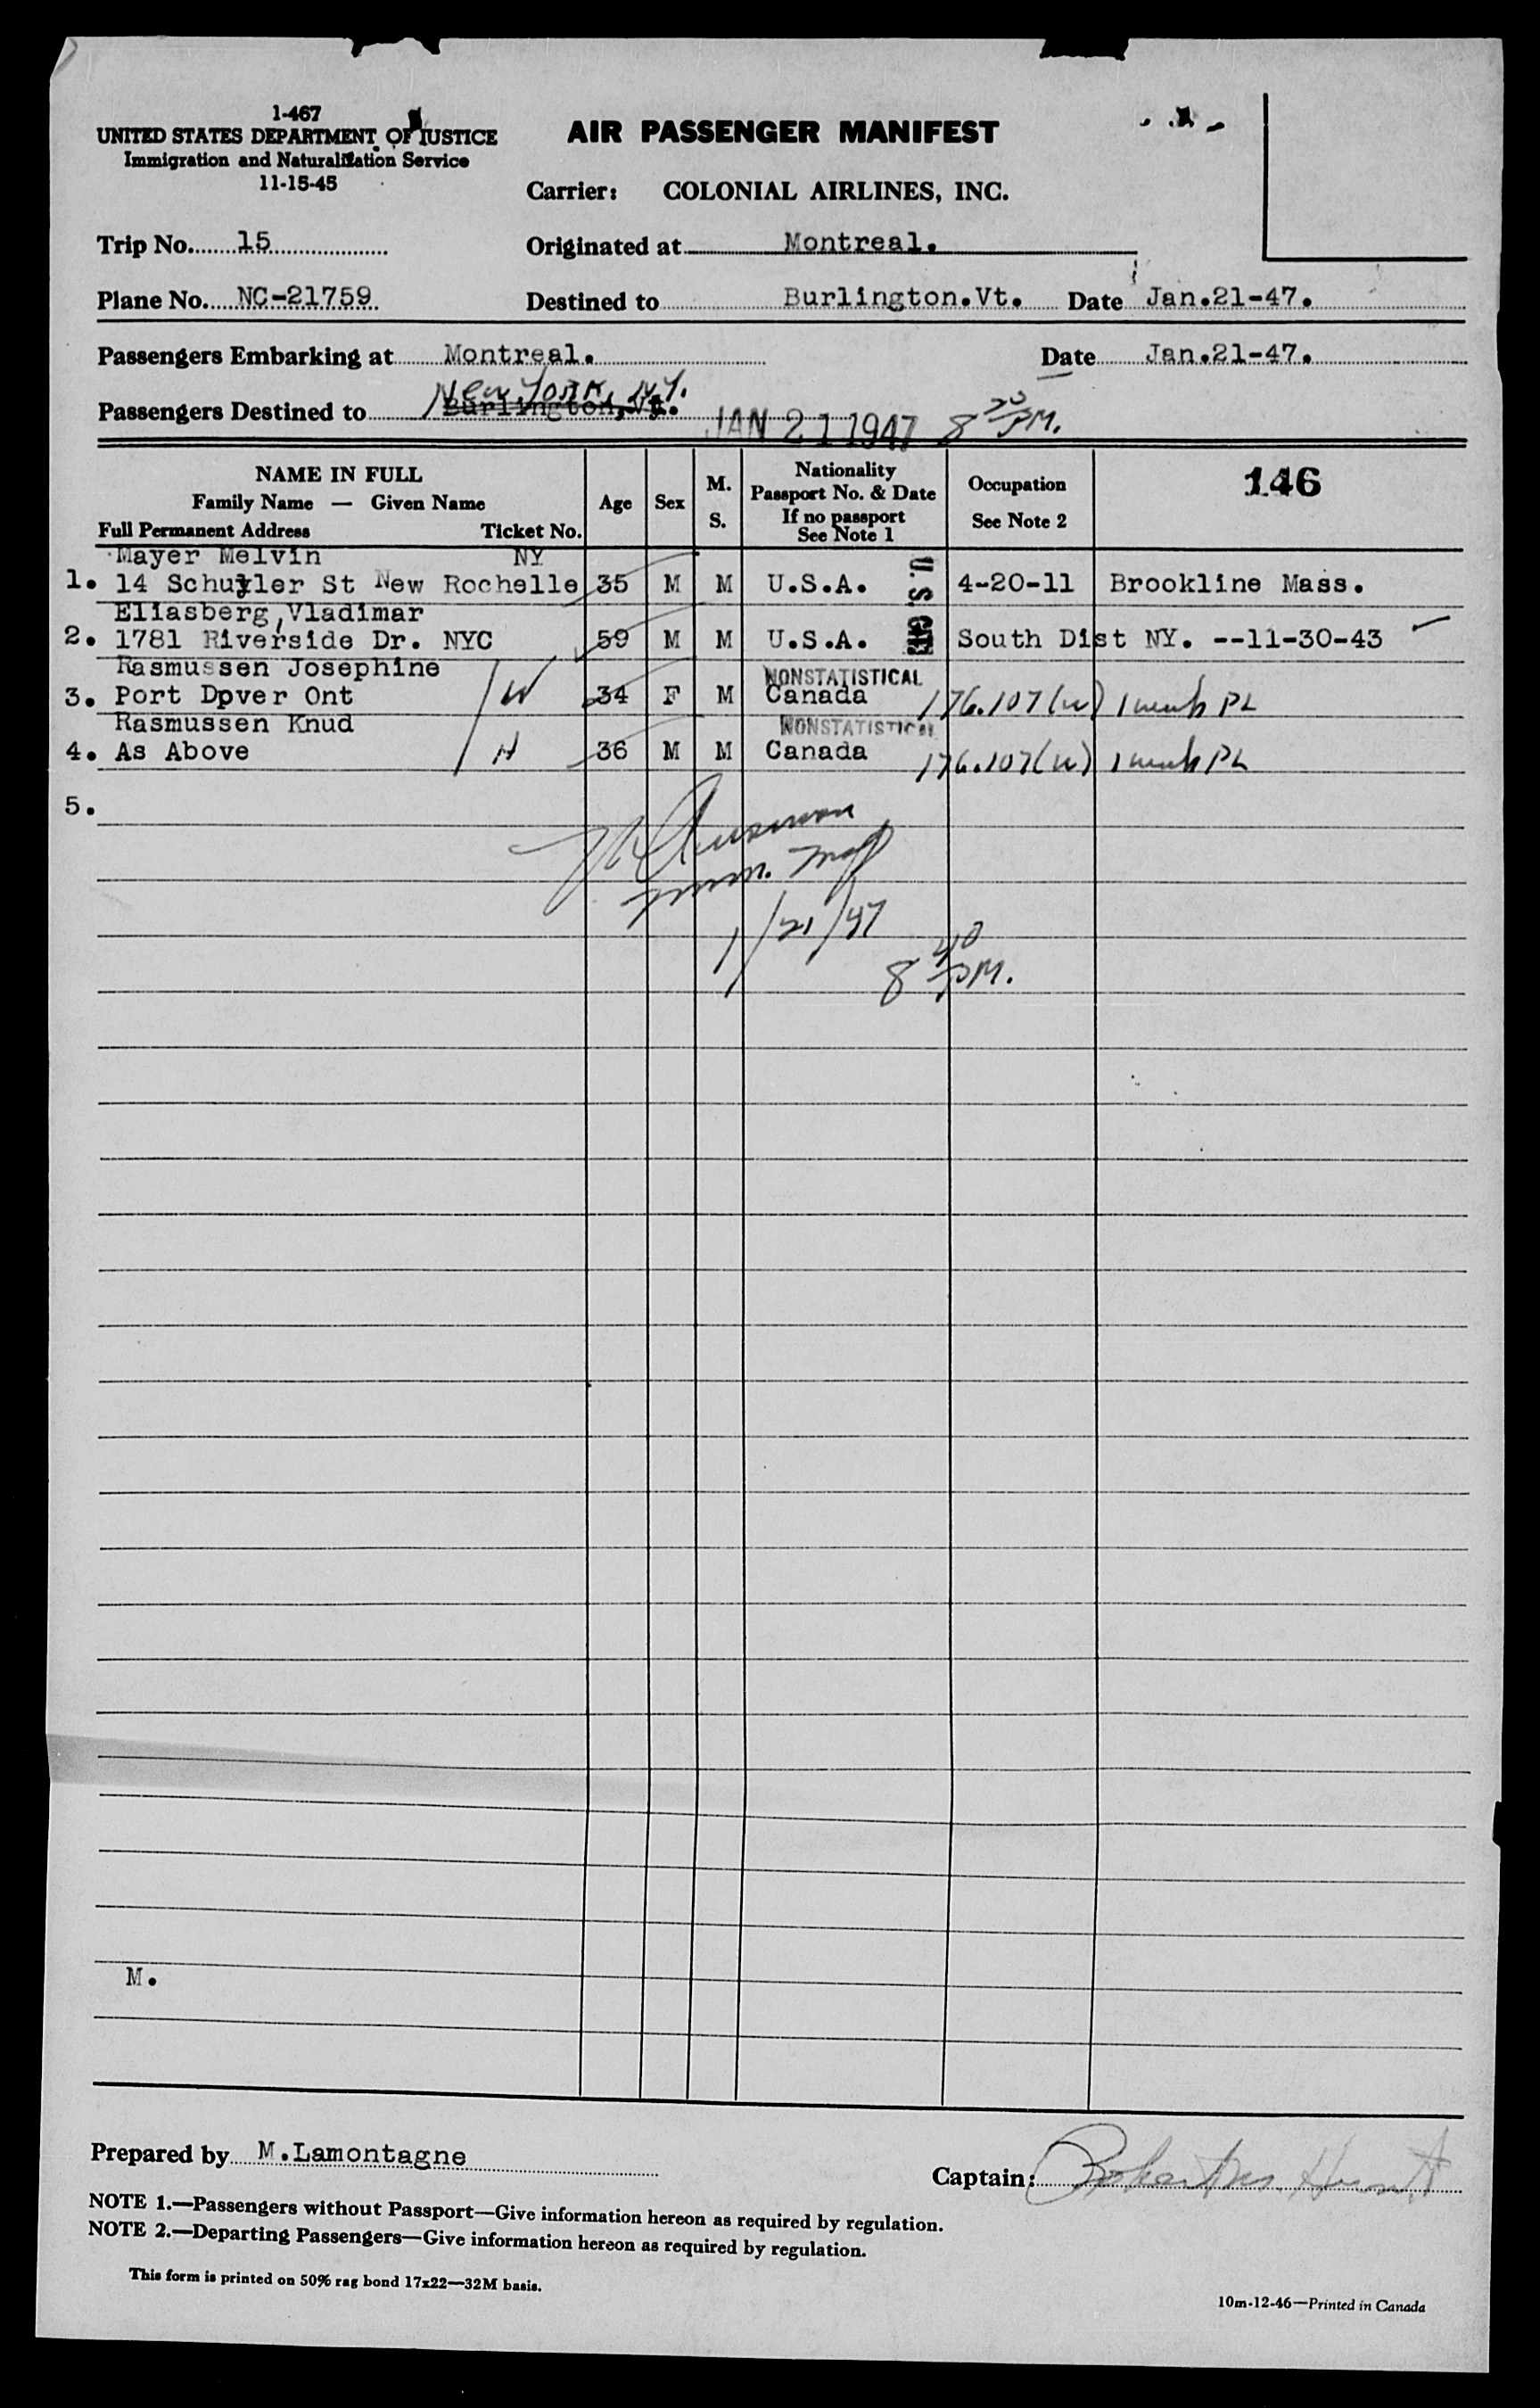 1-467
UNITED STATES DEPARTMENT OF JUSTICE
Immigration and Naturalization Service
11-15-45
AIR PASSENGER MANIFEST
Carrier: COLONIAL AIRLINES, INC.
Trip No. 15 Originated at Montreal.
Plane No. NC-21759 Destined to Burlington.Vt. Date Jan.21-47.
Passengers Embarking at Montreal. Date Jan.21-47.
New York, N.Y.
Passengers Destined to Burlington,Vt. JAN 21 1947 8 PM.
NAME IN FULL
Family Name — Given Name
Full Permanent Address Ticket No.
Age
Sex
M.
S.
Nationality
Passport No. & Date
If no passport
See Note 1
Occupation
See Note 2
146
Mayer Melvin NY
1. 14 Schuyler St New Rochelle 35 M M U.S.A. U.S. 4-20-11 Brookline Mass.
Eliasberg,Vladimar
2. 1781 Riverside Dr. NYC 59 M M U.S.A. South Dist NY. --11-30-43
Rasmussen Josephine NONSTATISTICAL
3. Port Dpver Ont W 34 F M Canada 176.107(w) 1 week PL
Rasmussen Knud NONSTATISTICAL
4. As Above H 36 M M Canada 176.107(w) 1 week PL
5.
Imm. Insp
1/21/47
8 40 PM.
M.
Prepared by M.Lamontagne
Captain: Hunt
NOTE 1.—Passengers without Passport—Give information hereon as required by regulation.
NOTE 2.—Departing Passengers—Give information hereon as required by regulation.
This form is printed on 50% rag bond 17x22—32M basis.
10m-12-46—Printed in Canada